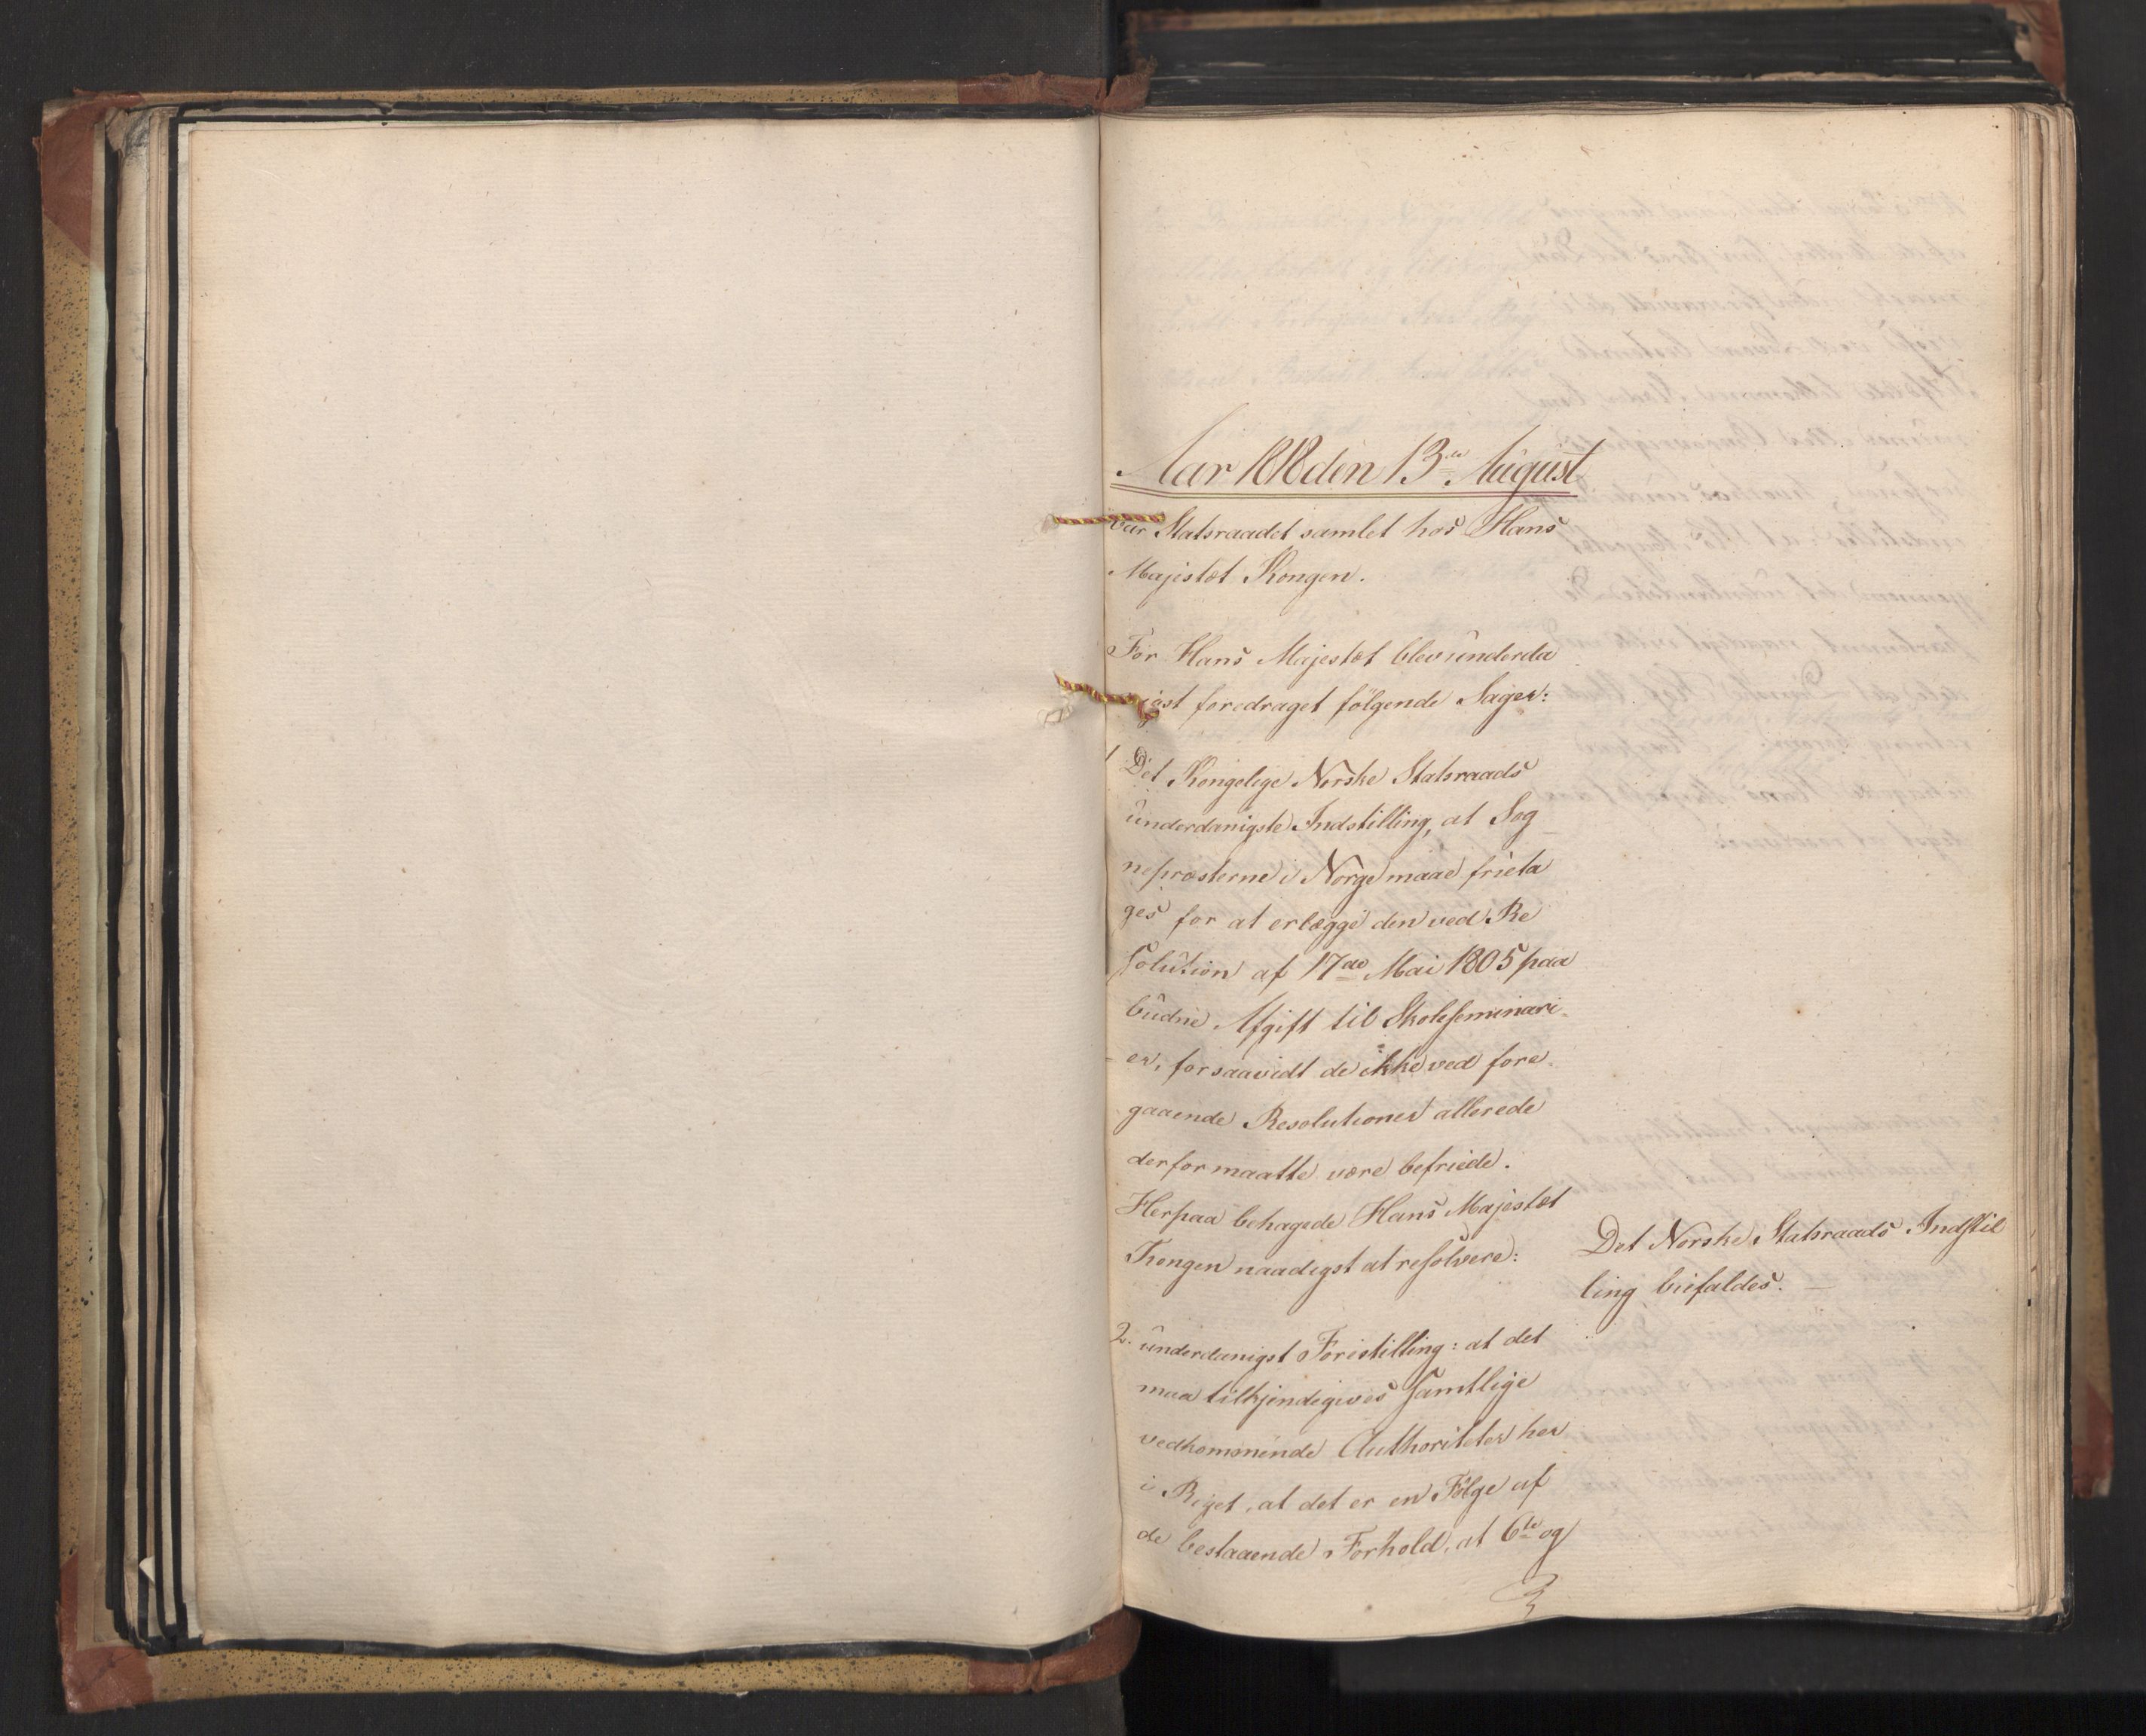 Aar 1818 den 13de August
var Statsraadet samlet hos Hans
Majestæt Kongen.
For Hans Majestæt blev underda
nigst foredraget følgende Sager:
1 Det Kongelige Norske Statsraads
underdanigste Indstilling, at Sog
nepræsterne i Norge maae frieta
ges for at erlægge den ved Re
solution af 17de Mai 1805 paa
budne Afgift til Skoleseminari
er, forsaavidt de ikke ved fore
gaaende Resolutioner allerede
derfor maatte være befriede.
Herpaa behagede Hans Majestæt
Kongen naadigst at resolvere:
Det Norske Statsraads Indstil
ling bifaldes. —
2. underdanigst Forestilling: at det
maa tilkjendegives samtlige
vedkommende Authoriteter her
i Riget, at det er en Følge af
de bestaaende Forhold, at 6te og